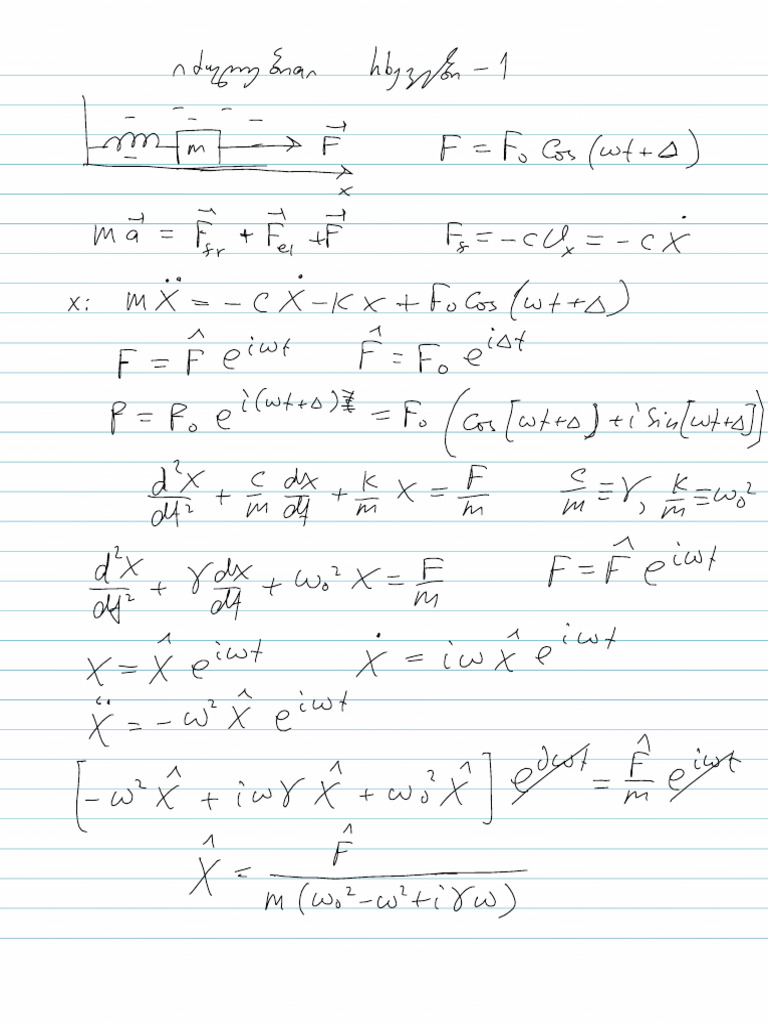 იძულებითი რხევები - 1
m F⃗ F = F₀ Cos (ωt + Δ)
x
m a⃗ = F⃗_fr + F⃗_el + F⃗ F_f = -c υ_x = -c Ẋ
x: m Ẍ = - c Ẋ - K x + F₀ Cos (ωt + Δ)
F = F̂ e^{iωt} F̂ = F₀ e^{iΔt}
F = F₀ e^{i(ωt+Δ)} = F₀ (Cos [ωt+Δ] + i Sin [ωt+Δ])
d²X/dt² + c/m dx/dt + k/m X = F/m c/m ≡ γ, K/m ≡ ω₀²
d²X/dt² + γ dx/dt + ω₀² X = F/m F = F̂ e^{iωt}
X = X̂ e^{iωt} Ẋ = iω X̂ e^{iωt}
Ẍ = - ω² X̂ e^{iωt}
[-ω² X̂ + iωγ X̂ + ω₀² X̂] e^{iωt} = F̂/m e^{iωt}
X̂ = F̂ / m (ω₀² - ω² + i γω)